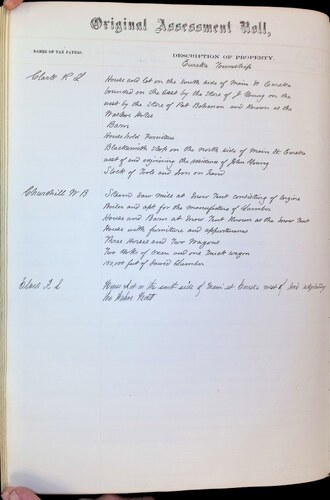 Original Assessment Roll,
NAMES OF TAX PAYERS.
DESCRIPTION OF PROPERTY.
Eureka Township
Clark R L
House and lot on the South side of Main St Eureka
bounded on the East by the Store of J Young on the
west by the Store of Pat Bohanan and Known as the
Hotel
Barn
Household Furniture
Blacksmith Shop on the north side of Main St Eureka
west of and adjoining the residence of John Young
Stock of Tools and Iron on hand
Churchill W B
Steam Saw mill at consisting of Engine
Boiler and apt for the manufacture of Lumber
House and Barn at Known as the
House with furniture and
Three Horses and Two Wagons
Two Yolks of Oxen and one Truck wagon
feet of Sawed Lumber
Clark
House Lot on the south side of Main st Eureka west of and adjoining
the